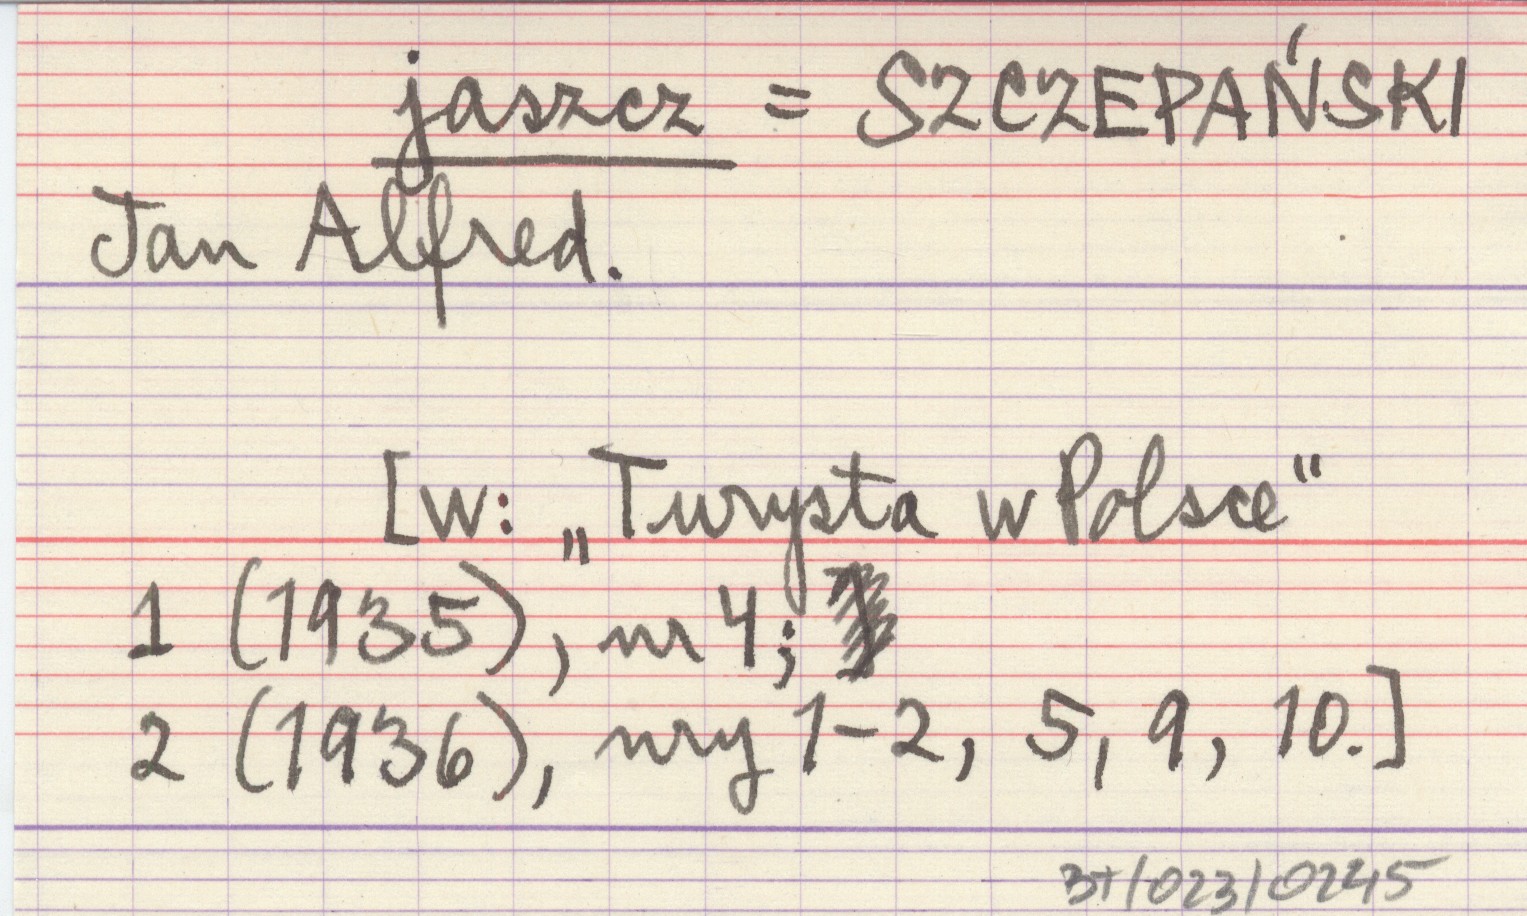 jaszcz = SZCZEPAŃSKI
Jan Alfred.
[w: „Turysta w Polsce“
1 (1935), nr 4;
2 (1936), nry 1-2, 5, 9, 10.]
3+/023/0245